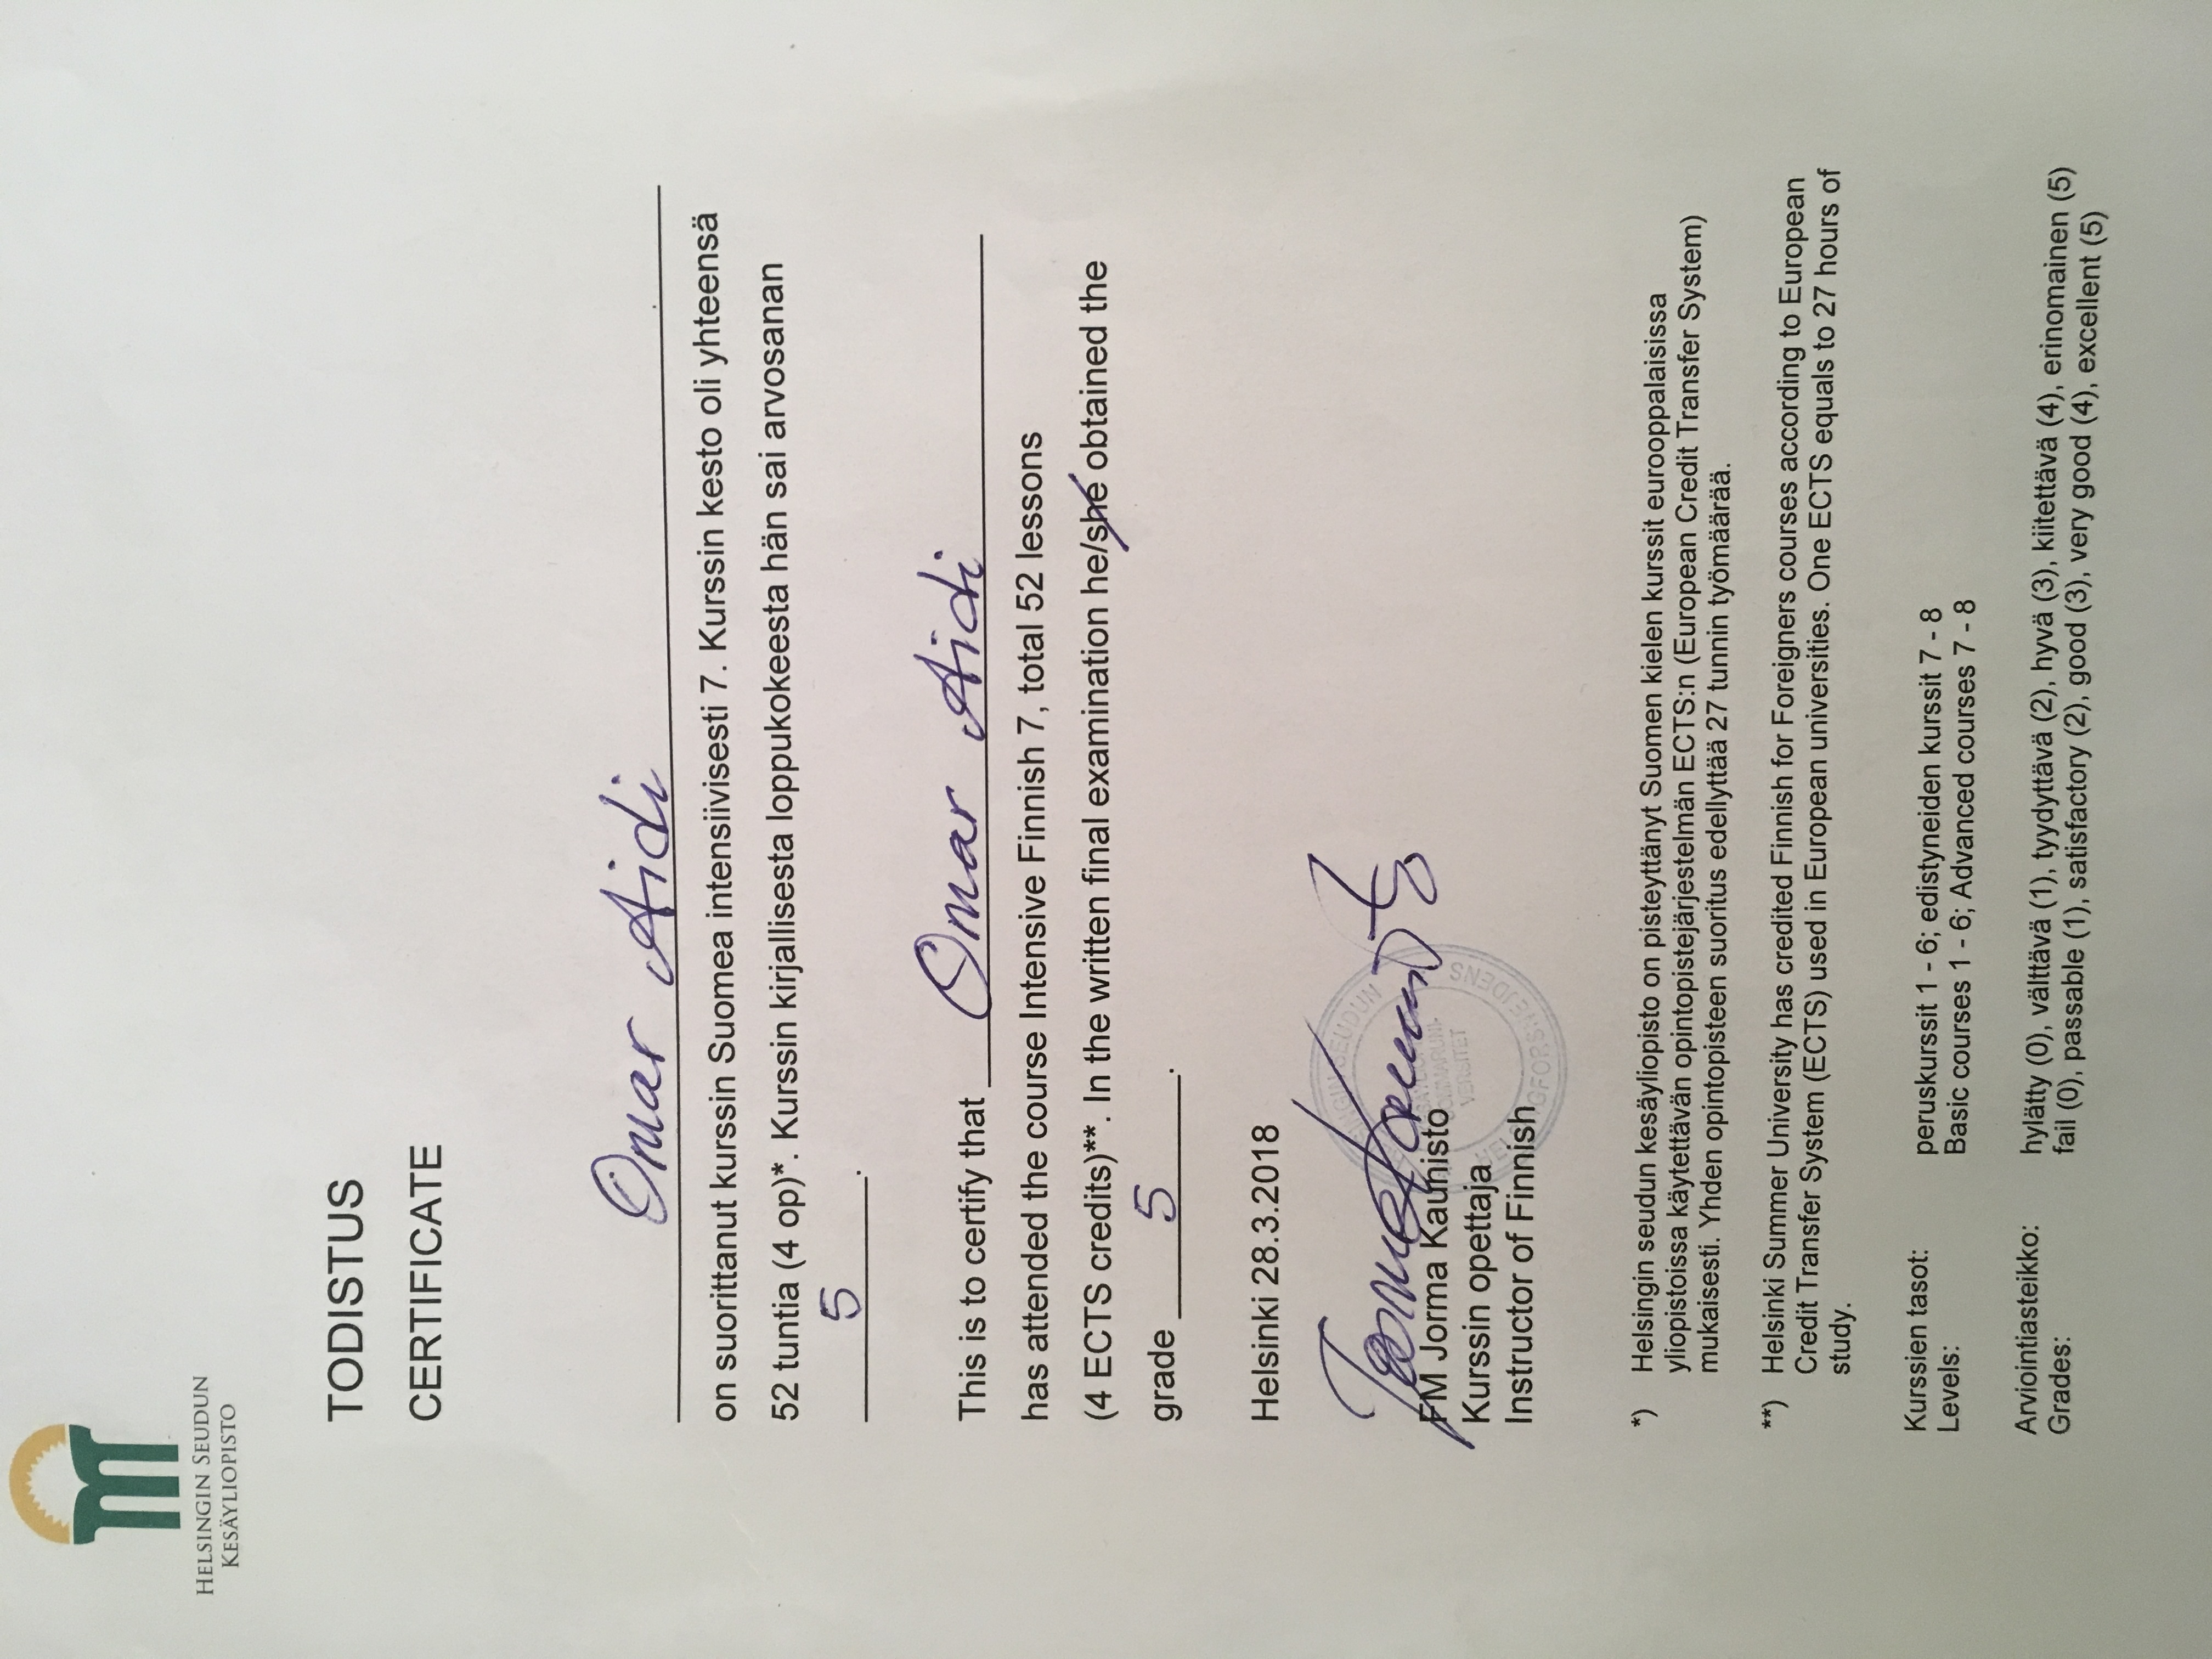 HELSINGIN SEUDUN
KESÄYLIOPISTO
TODISTUS
CERTIFICATE
Omar Aidi
on suorittanut kurssin Suomea intensiivisesti 7. Kurssin kesto oli yhteensä
52 tuntia (4 op)*. Kurssin kirjallisesta loppukokeesta hän sai arvosanan
5.
This is to certify that Omar Aidi
has attended the course Intensive Finnish 7, total 52 lessons
(4 ECTS credits)**. In the written final examination he/she obtained the
grade 5.
Helsinki 28.3.2018
Jorma Kaunisto
FM Jorma Kaunisto
Kurssin opettaja
Instructor of Finnish
HELSINGIN SEUDUN
SOMMARUNI-
VERSITET
HELSINGFORSNEJDENS
*) Helsingin seudun kesäyliopisto on pisteyttänyt Suomen kielen kurssit eurooppalaisissa
yliopistoissa käytettävän opintopistejärjestelmän ECTS:n (European Credit Transfer System)
mukaisesti. Yhden opintopisteen suoritus edellyttää 27 tunnin työmäärää.
**) Helsinki Summer University has credited Finnish for Foreigners courses according to European
Credit Transfer System (ECTS) used in European universities. One ECTS equals to 27 hours of
study.
Kurssien tasot: peruskurssit 1 - 6; edistyneiden kurssit 7 - 8
Levels: Basic courses 1 - 6; Advanced courses 7 - 8
Arviointiasteikko: hylätty (0), välttävä (1), tyydyttävä (2), hyvä (3), kiitettävä (4), erinomainen (5)
Grades: fail (0), passable (1), satisfactory (2), good (3), very good (4), excellent (5)